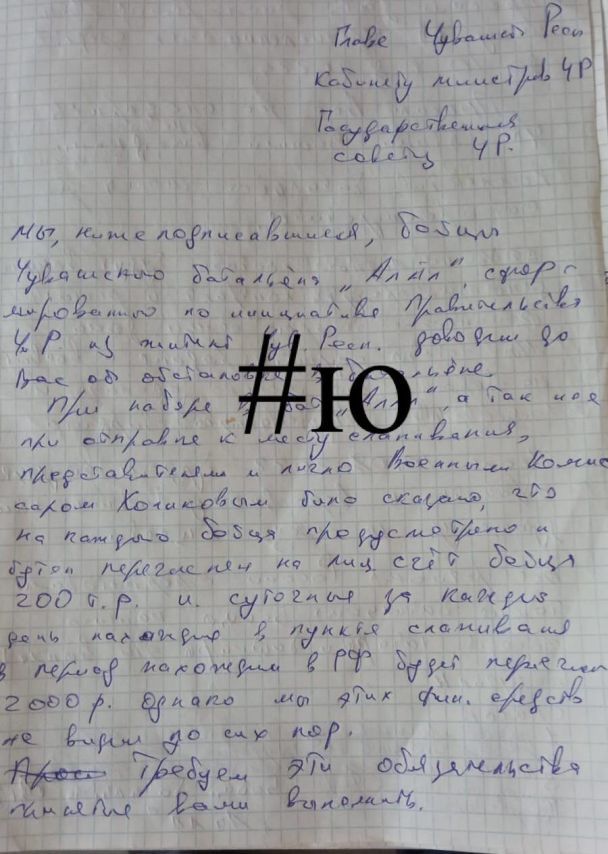 Главе Чувашск Респ
Кабинету министров ЧР
Государственном
совету ЧР.
Мы, ниже подписавшиеся, бойцы
Чувашского батальёна „Атăл", сфор-
мированного по инициативе Правительства
ЧР из жителей Чув Респ. доводим до
Вас об обстановке в батальёне.
При наборе в бат „Атăл", а так же
при отправке к месту слаживания,
представителями и лично Военным Комис
саром Хомиковым было сказано, что
на каждого бойца предусмотрено и
будет перечислен на лиц счёт бойца
200 т.р. и. суточные за каждый
день нахождния в пункте слаживания
в период нахождния в РФ будет перечислен
2000 р. Однако мы этих фин. средств
не видим до сих пор.
Требуем эти обязательства
принятые вами выполнить.
#ю